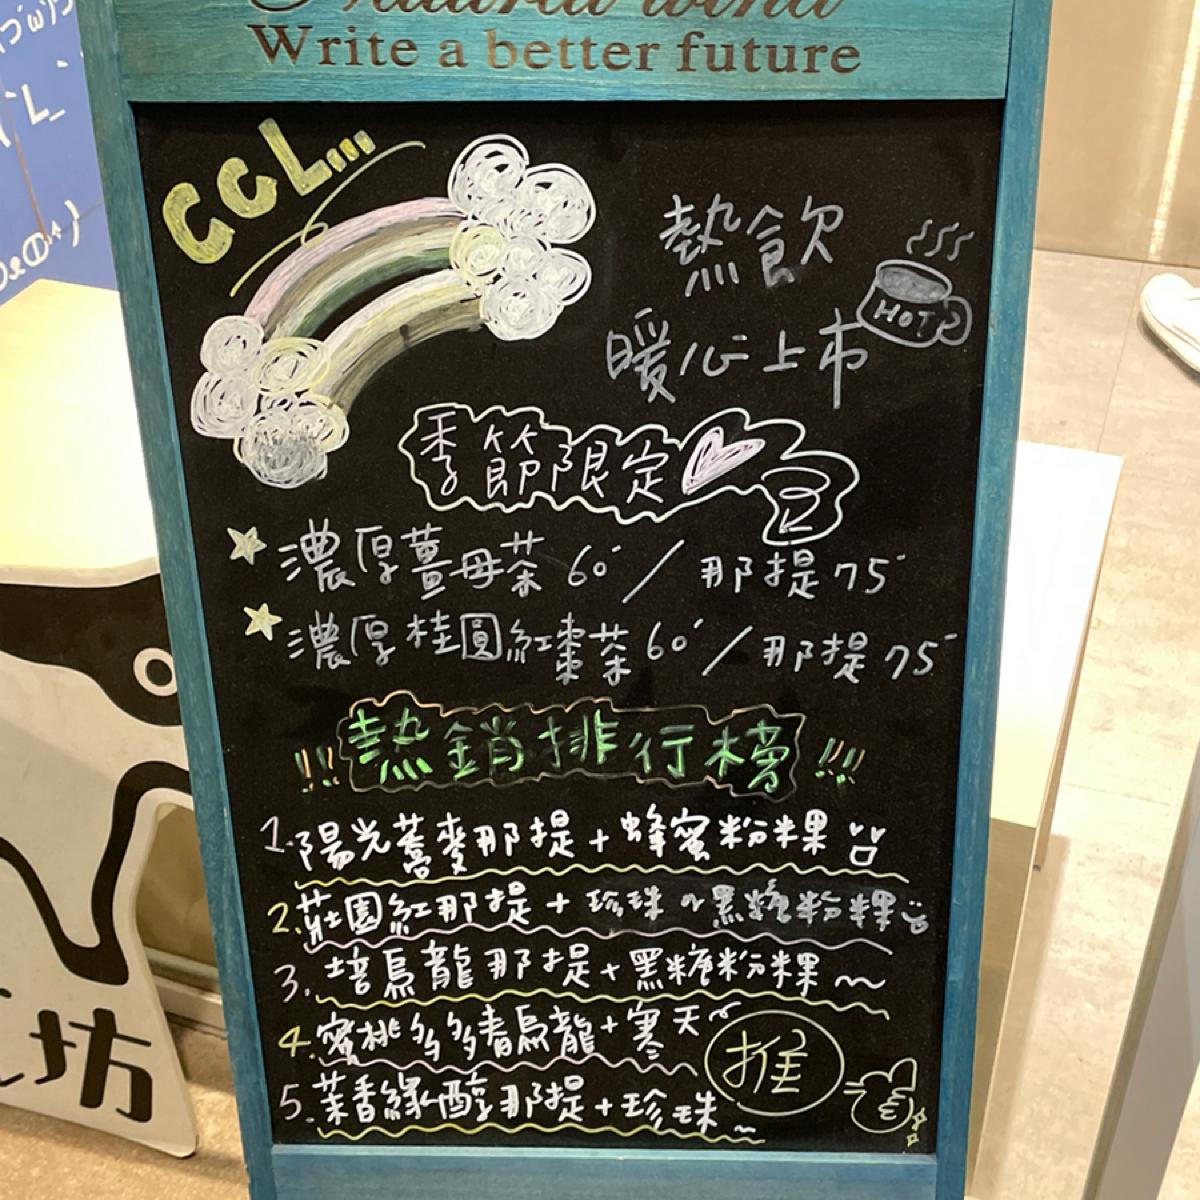 Natural wind
Write a better future
CCL...
熱飲
HOT
暖心上市
季節限定
濃厚薑母茶60/那提75
濃厚桂圓紅棗茶60/那提75
!!熱銷排行榜!!!
1.陽光蕎麥那提+蜂蜜粉粿
2.莊園紅那提+珍珠~黑糖粉粿
3.培烏龍那提+黑糖粉粿~
4.蜜桃多多青烏龍+寒天
推
5.茉香綠醇那提+珍珠~
坊